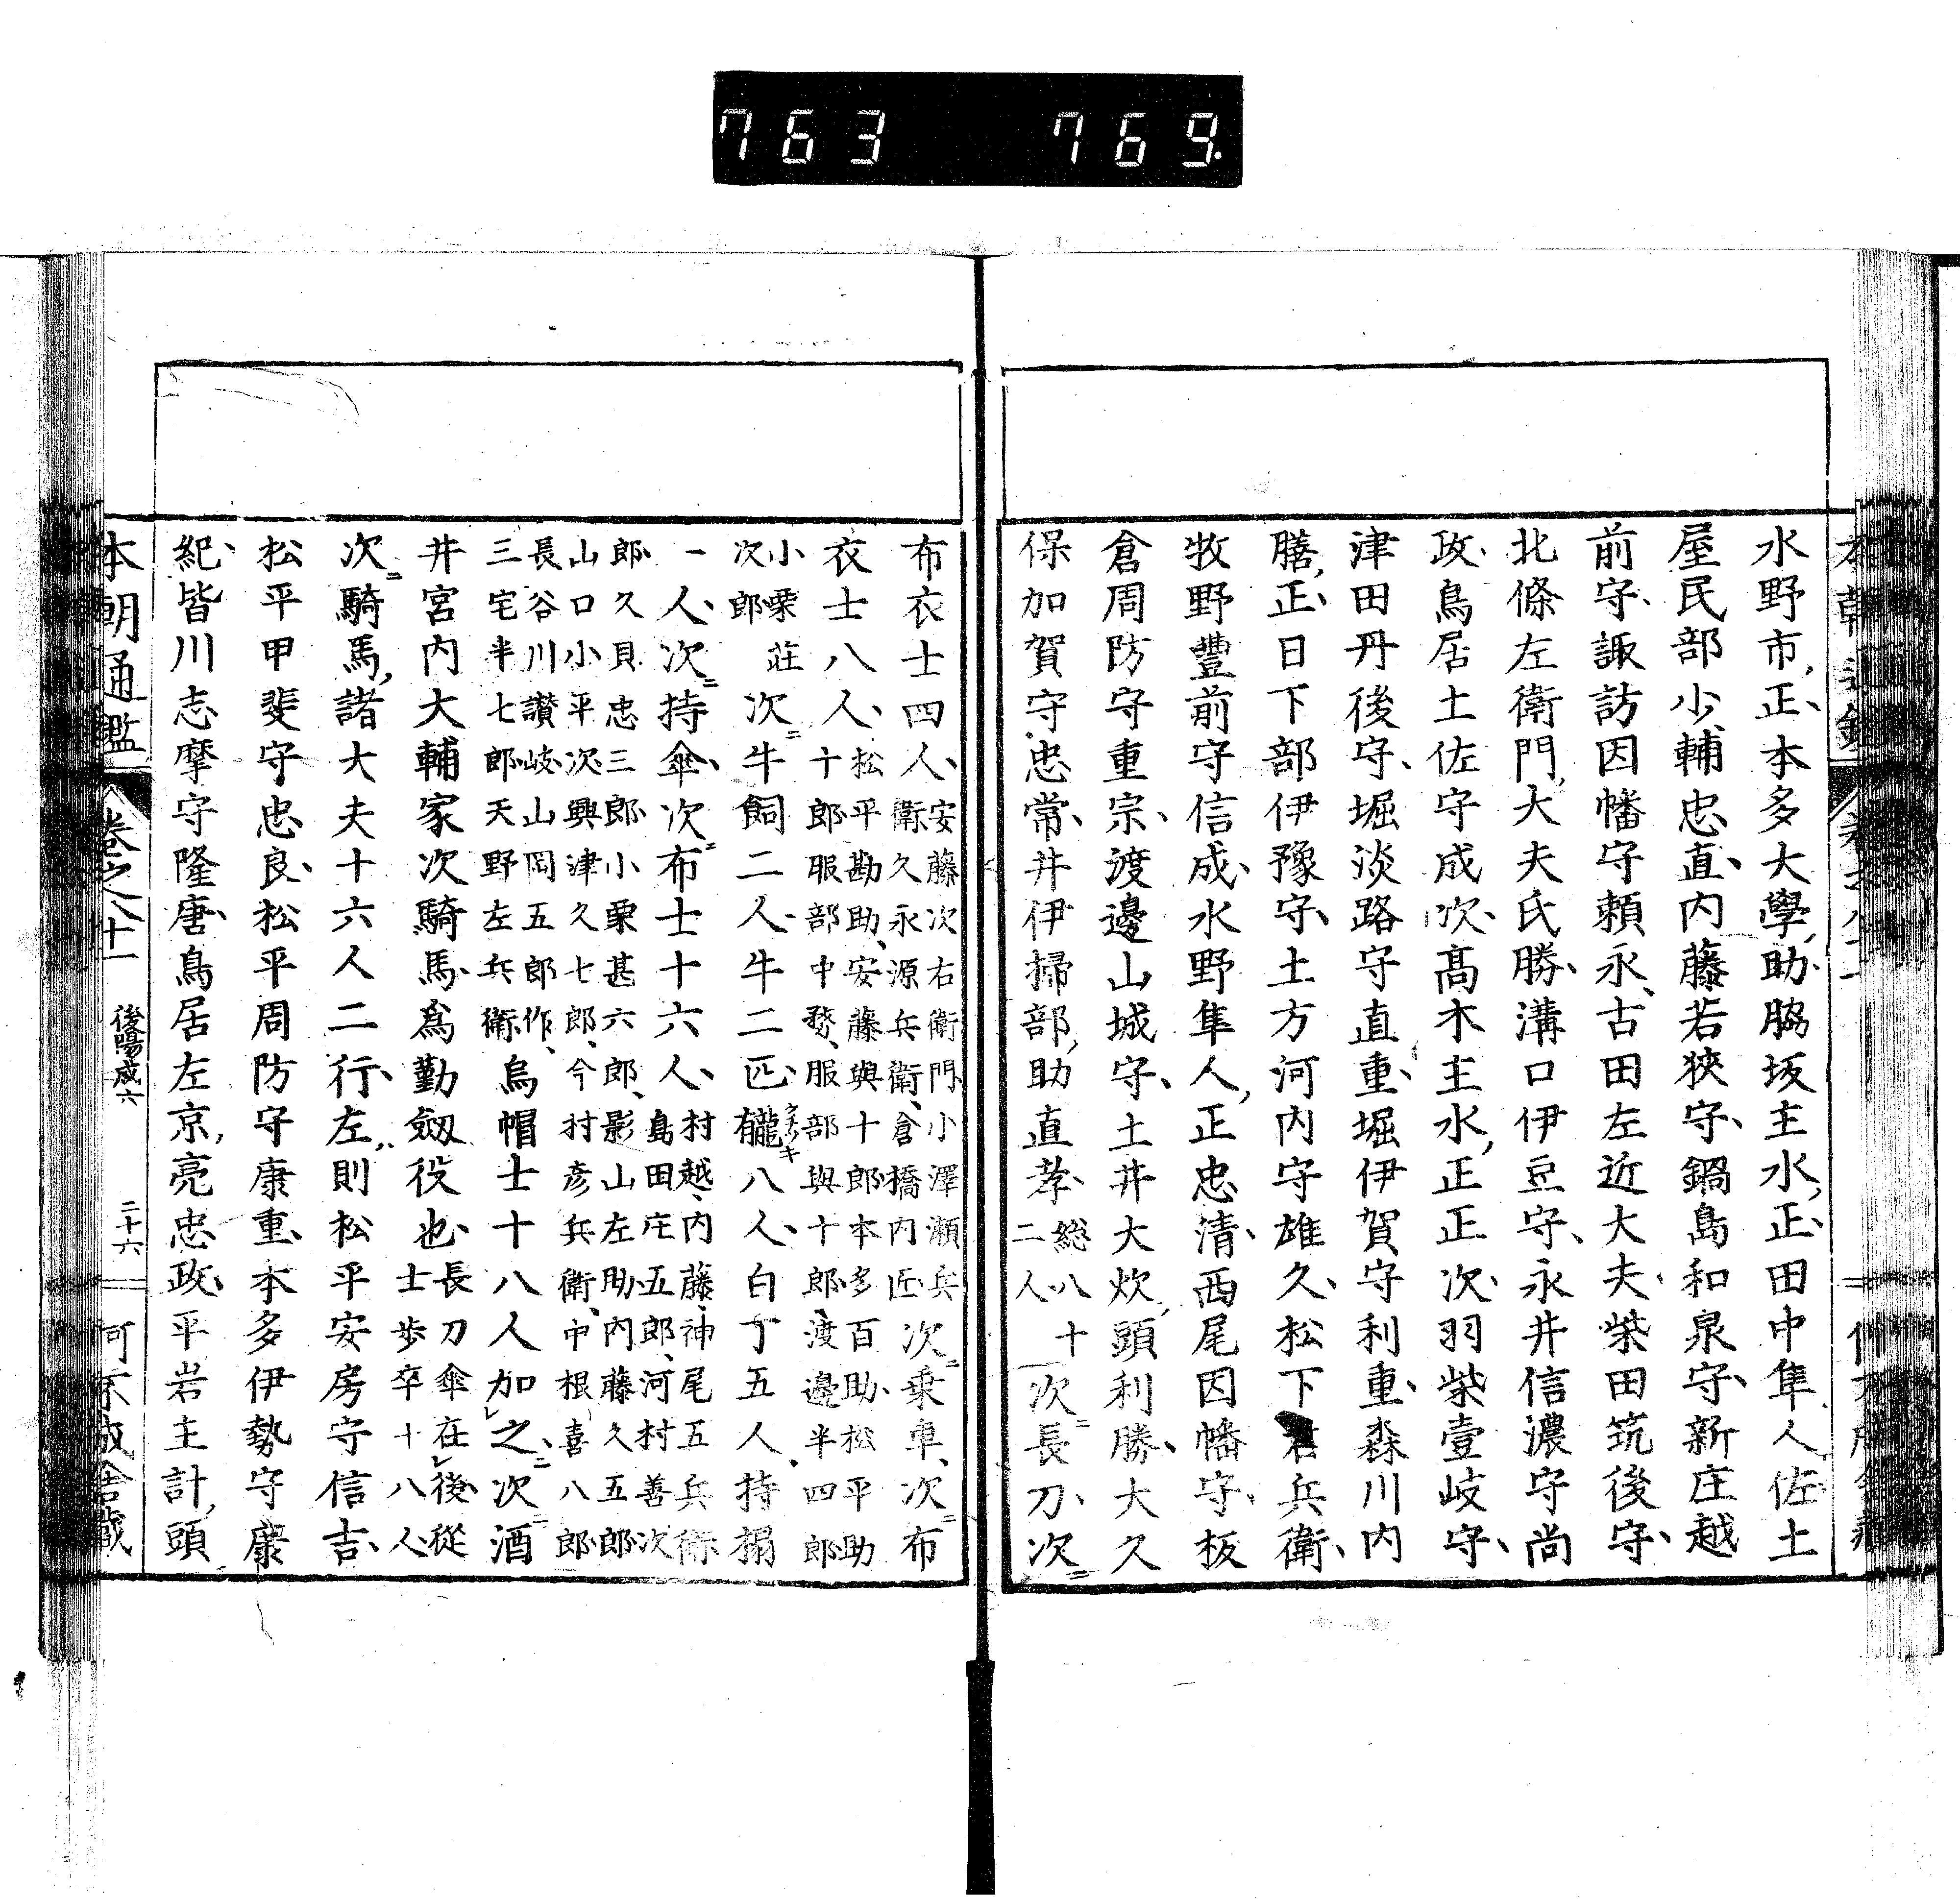 763 769.
水野市正、本多大學助、脇坂主水正、田中隼人佐、土
屋民部少輔忠直、内藤若狹守、鍋島和泉守、新庄越
前守、諏訪因幡守頼永、古田左近大夫、柴田筑後守、
北條左衛門大夫氏勝、溝口伊豆守、永井信濃守尚
政、鳥居土佐守成次、髙木主水正正次、羽柴壹岐守、
津田丹後守、堀淡路守直重、堀伊賀守利重、森川内
膳正、日下部伊豫守、土方河内守雄久、松下右兵衛、
牧野豐前守信成、水野隼人正忠清、西尾因幡守、板
倉周防守重宗、渡邊山城守、土井大炊頭利勝、大久
保加賀守忠常、井伊掃部助直孝、総八十
二人 次ニ長刀、次ニ
布衣士四人、安藤次右衛門小澤瀬兵
衛久永源兵衛、倉橋内匠 次ニ乗車、次ニ布
衣士八人、松平勘助、安藤與十郎本多百助、松平助
十郎服部中務、服部與十郎、渡邊半四郎
小栗莊
次郎 次ニ牛飼二人、牛二匹、有䪊八人、白丁五人、持榻
一人、次ニ持傘、次ニ布士十六人、村越、内藤、神尾五兵衛
島田庄五郎、河村善次
郎、久貝忠三郎、小栗甚六郎、影山左助、内藤久五郎
山口小平次興津久七郎、今村彦兵衛、中根喜八郎
長谷川讃岐、山岡五郎作、
三宅半七郎天野左兵衛 烏帽士十八人加之、次ニ酒
井宮内大輔家次騎馬、爲勤劔役也、長刀傘在後、從
士歩卒十八人
次ニ騎馬、諸大夫十六人二行、左則松平安房守信吉、
松平甲斐守忠良、松平周防守康重、本多伊勢守康
紀、皆川志摩守隆唐、鳥居左京亮忠政、平岩主計頭
本朝通鑑 卷之八十一 後陽成六 二十六